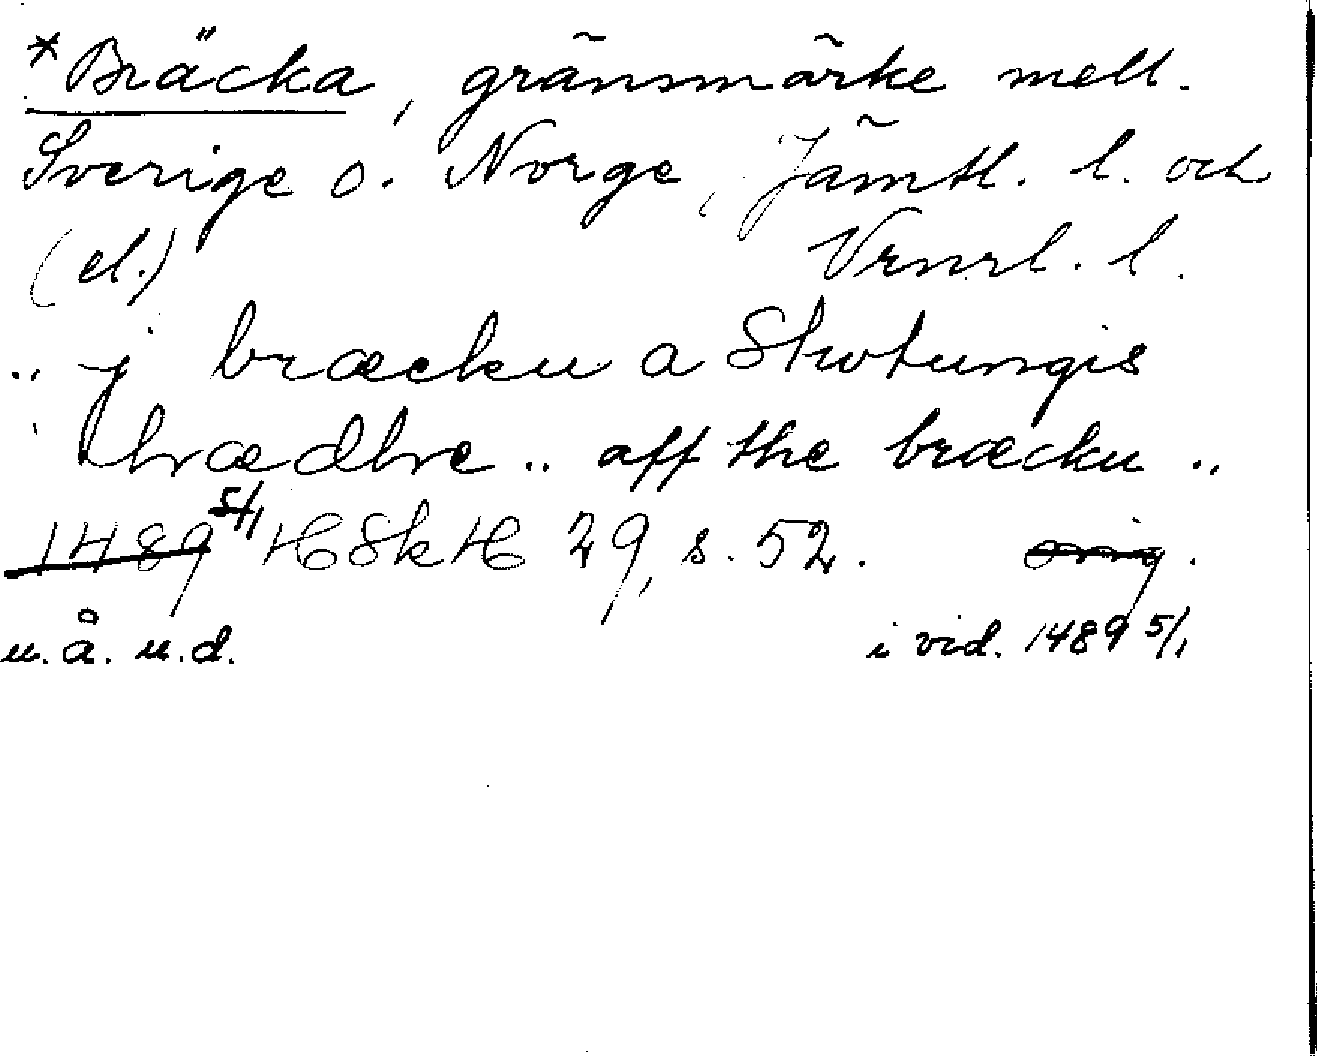 *Bräcka, gränsmärke mell.
Sverige o. Norge, Jämtl. l. och
(el.) Vrml. l.
.. j bræcku a Skotungis
brædhre .. aff the bræcku ..
1489 5/1 HSkH 29, s. 52. orig.
u. å. u. d. i vid. 1489 5/1